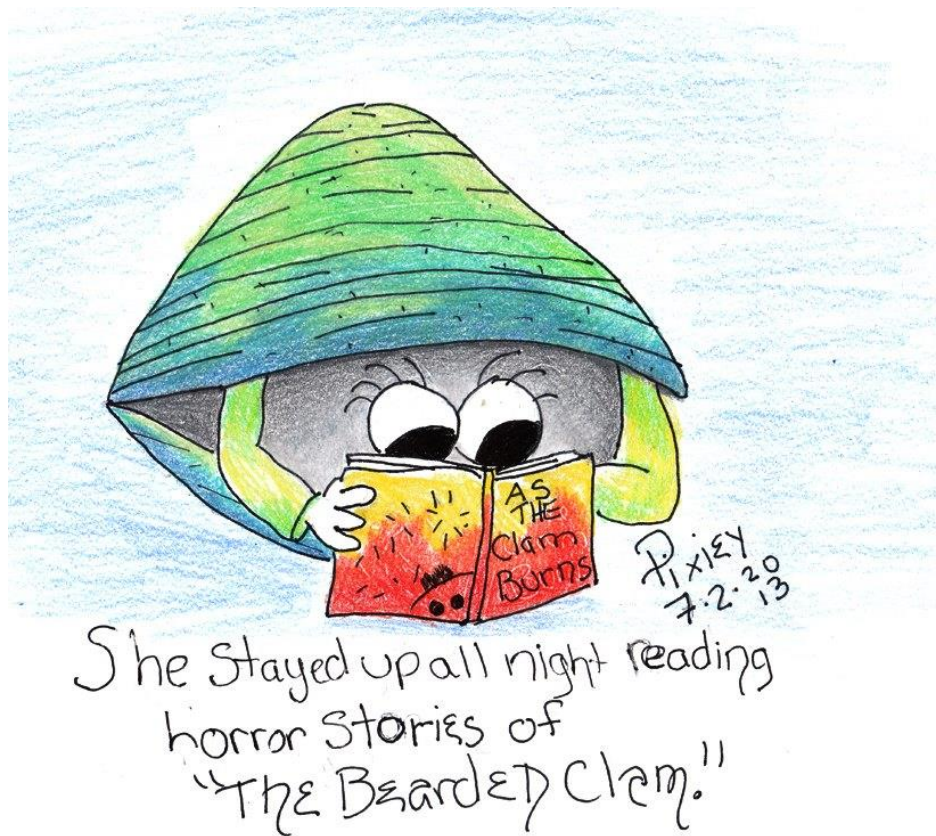 AS
THE
Clam
Burns
Pixiey
7.2.2013
She stayed up all night reading
horror stories of
"The Bearded Clam."